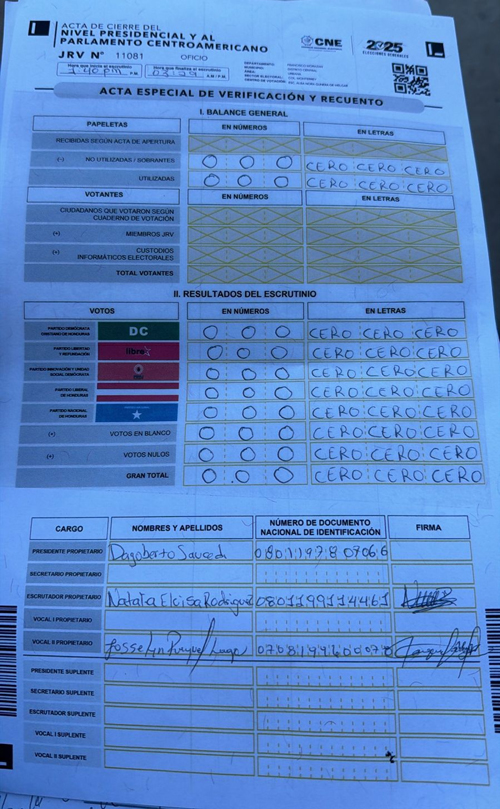 ACTA DE CIERRE DEL
NIVEL PRESIDENCIAL Y AL
PARLAMENTO CENTROAMERICANO
JRV N° 11081 OFICIO
CNE
2025
ELECCIONES GENERALES
Hora que inicia el escrutinio
Hora que finaliza el escrutinio
1:40 pm
03:09
ACTA ESPECIAL DE VERIFICACIÓN Y RECUENTO
I. BALANCE GENERAL
PAPELETAS EN NÚMEROS EN LETRAS
RECIBIDAS SEGÚN ACTA DE APERTURA
(-) NO UTILIZADAS / SOBRANTES 0 0 0 CERO CERO CERO
UTILIZADAS 0 0 0 CERO CERO CERO
VOTANTES EN NÚMEROS EN LETRAS
CIUDADANOS QUE VOTARON SEGÚN
CUADERNO DE VOTACIÓN
(+) MIEMBROS JRV
(+) CUSTODIOS
INFORMÁTICOS ELECTORALES
TOTAL VOTANTES
II. RESULTADOS DEL ESCRUTINIO
VOTOS EN NÚMEROS EN LETRAS
PARTIDO DEMÓCRATA
CRISTIANO DE HONDURAS DC 0 0 0 CERO CERO CERO
PARTIDO LIBERTAD
Y REFUNDACIÓN libre 0 0 0 CERO CERO CERO
PARTIDO INNOVACIÓN Y UNIDAD
SOCIAL DEMÓCRATA 0 0 0 CERO CERO CERO
PARTIDO LIBERAL
DE HONDURAS 0 0 0 CERO CERO CERO
PARTIDO NACIONAL
DE HONDURAS 0 0 0 CERO CERO CERO
(+) VOTOS EN BLANCO 0 0 0 CERO CERO CERO
(+) VOTOS NULOS 0 0 0 CERO CERO CERO
GRAN TOTAL 0 0 0 CERO CERO CERO
CARGO NOMBRES Y APELLIDOS NÚMERO DE DOCUMENTO
NACIONAL DE IDENTIFICACIÓN FIRMA
PRESIDENTE PROPIETARIO Dagoberto
SECRETARIO PROPIETARIO
ESCRUTADOR PROPIETARIO Eloisa Rodriguez 0801199114461
VOCAL I PROPIETARIO
VOCAL II PROPIETARIO
PRESIDENTE SUPLENTE
SECRETARIO SUPLENTE
ESCRUTADOR SUPLENTE
VOCAL I SUPLENTE
VOCAL II SUPLENTE